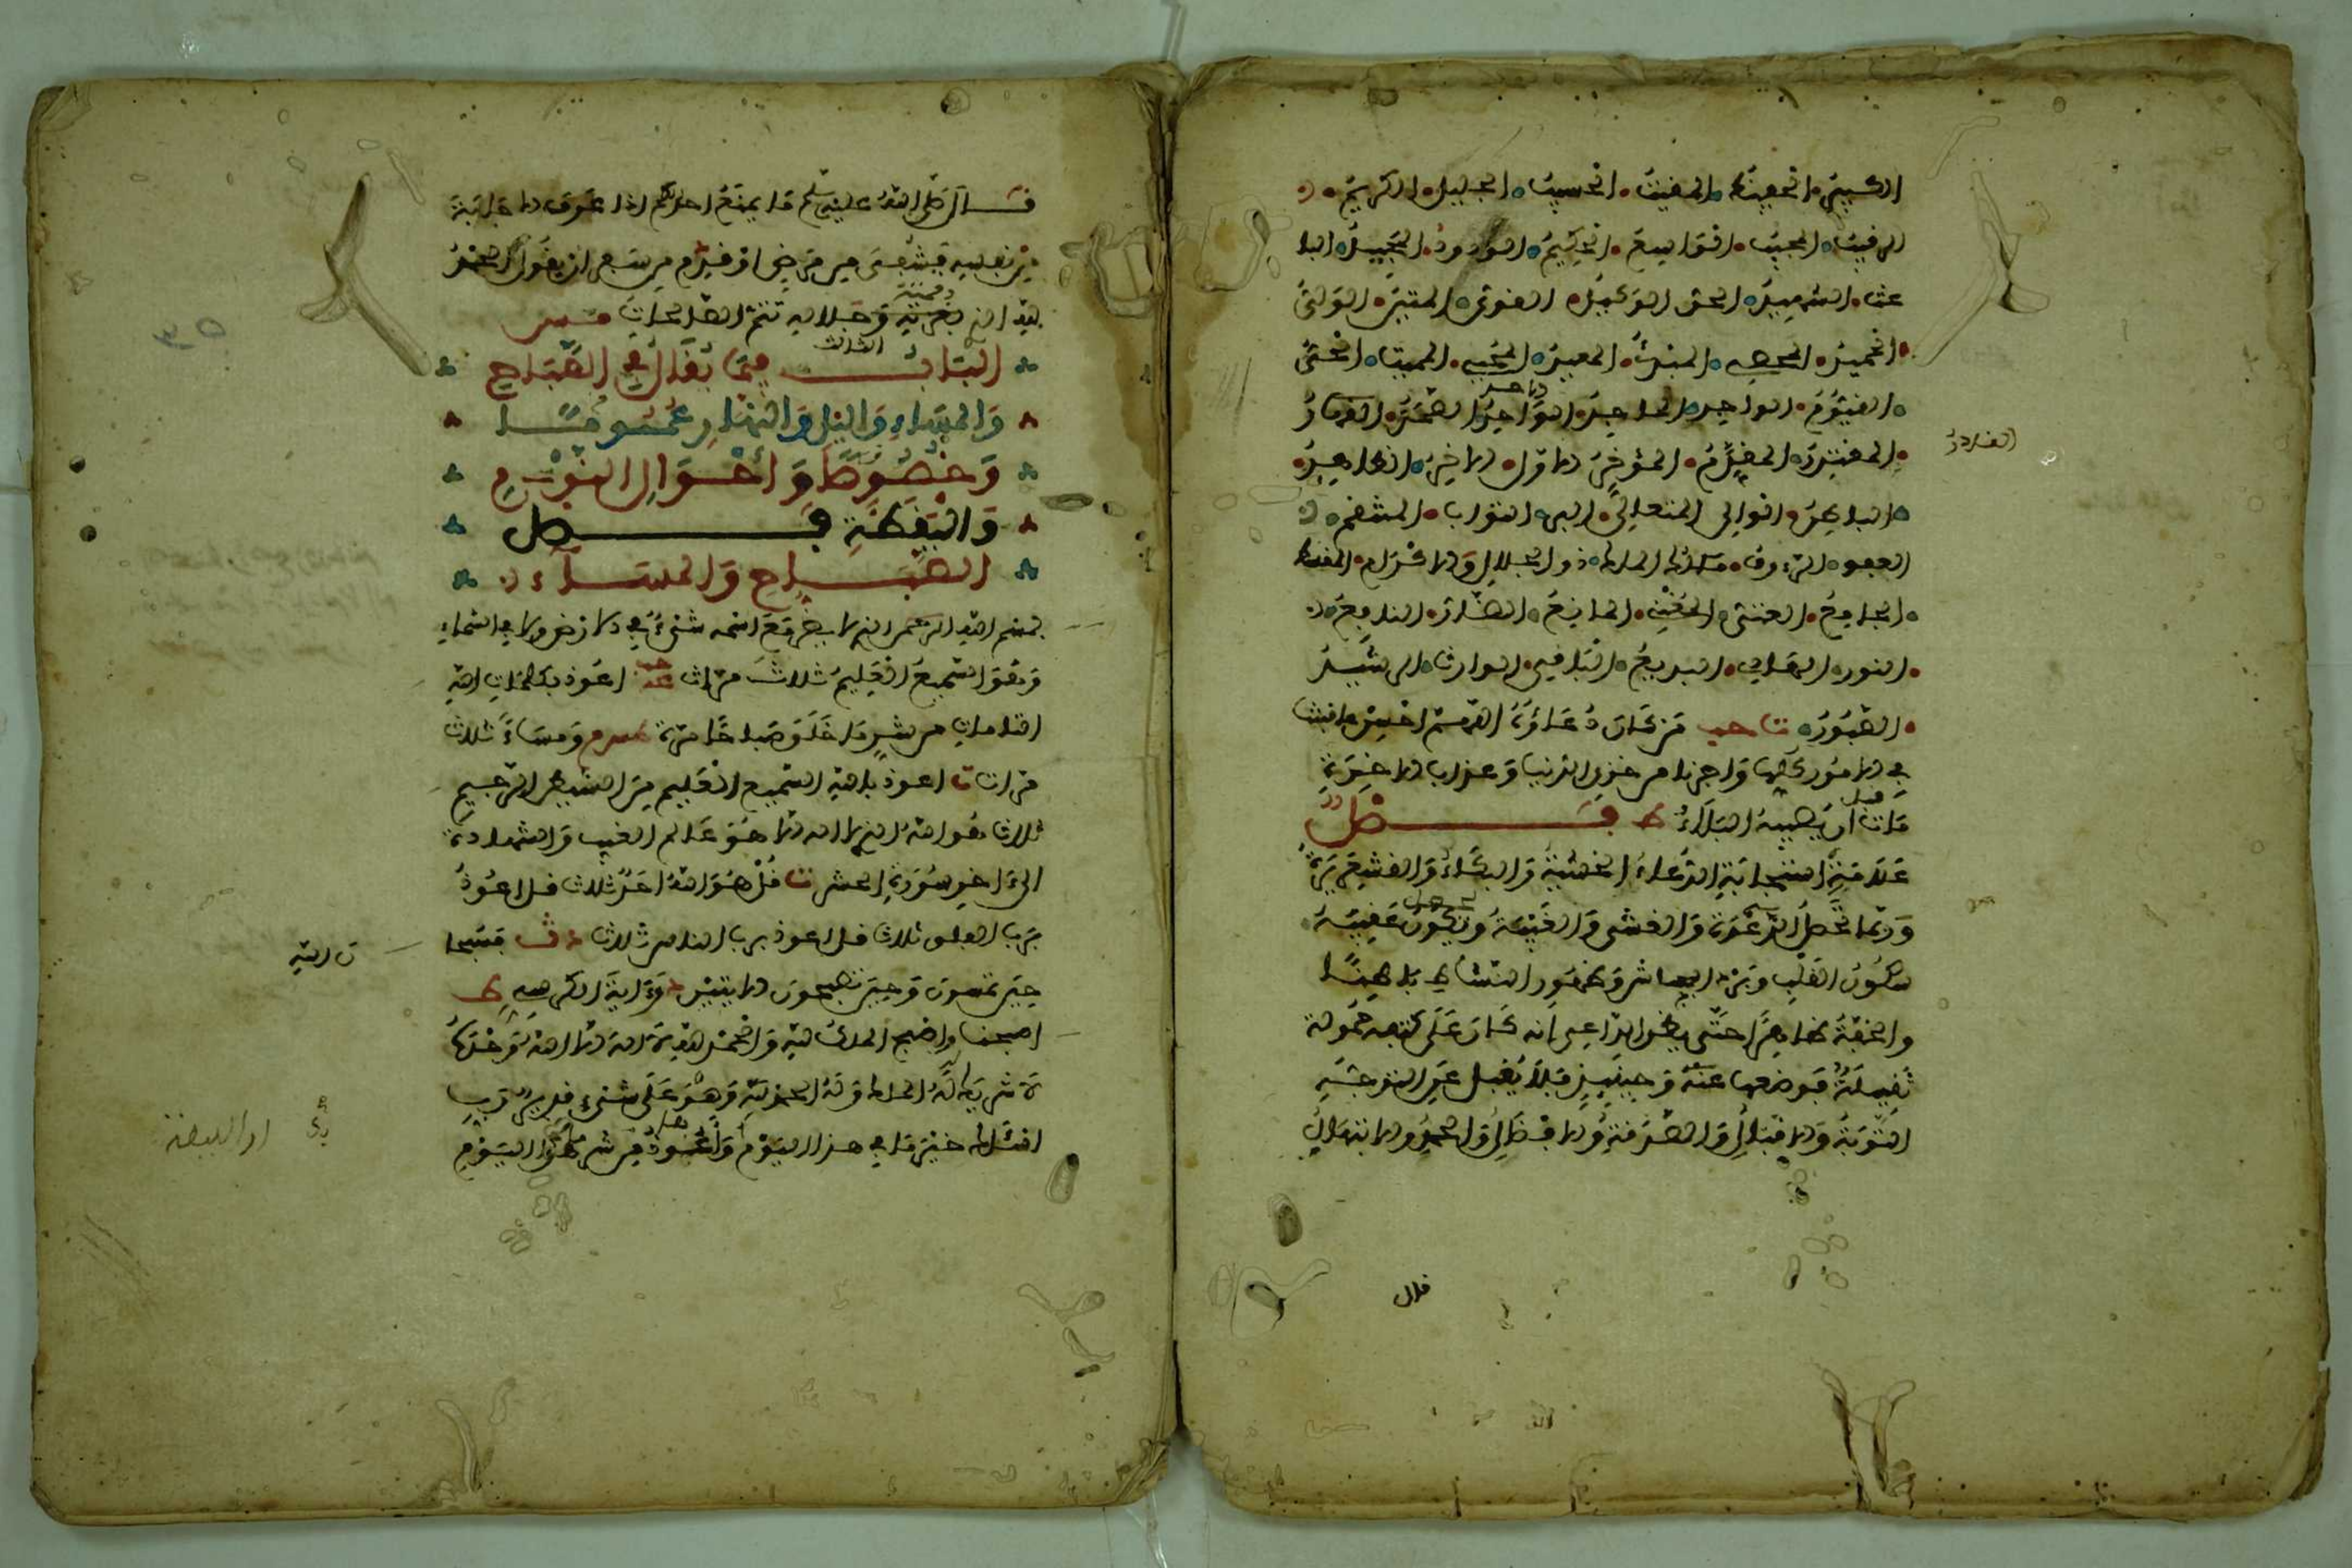 الكبير الحفيظ المغيث الحسيب الجليل الكريم
الرقيب المجيب الواسع الحكيم الودود المجيد البا
عث الشهيد الحق الوكيل القوي المتين الولي
الحميد المحصي المبدئ المعيد المحيي المميت الحي
القيوم الواجد الماجد الواحد الاحد الصمد القادر
القادر
المقتدر المقدم المؤخر الاول الاخر الظاهر
الباطن الوالي المتعالي البر التواب المنتقم
العفو الرءوف مالك الملك ذو الجلال والاكرام المقسط
الجامع الغني المغني المانع الضار النافع
النور الهادي البديع الباقي الوارث الرشيد
الصبور حب من كان دعاؤه اللهم احسن عاقبتنا
في الامور كلها واجرنا من خزي الدنيا وعذاب الاخرة
مات قبل ان يصيبه البلاء ط فصل
علامة استجابة الدعاء الخشية والبكاء والقشعريرة
وربما تحصل الرعدة والغشي والغيبة ويكون عقيبه
سكون القلب وبرد الجاش وظهور النشاط باطنا
والخفة ظاهرا حتى يظن الداعي انه كان على كتفه حمولة
ثقيلة فوضعها عنه وحينئذ فلا يغفل عن التوجه
التوبة والاقبال والصدقة والافضال والحمد والابتهال
قال
قال صلى الله عليه وسلم ما يمنع احدكم اذا عرف الاجابة
من نفسه فشفي من مرض او قدم من سفر ان يقول الحمد
لله الذي بعزته وجلاله تتم الصالحات مس
الباب الثالث فيما يقال في الصباح
والمساء والليل والنهار عموما
وخصوصا واحوال النوم
واليقظة فصل
الصباح والمساء
بسم الله الذي لا يضر مع اسمه شيء في الارض ولا في السماء
وهو السميع العليم ثلاث مرات اعوذ بكلمات الله
التامات من شر ما خلق صباحا ومساء ثلاث
مرات اعوذ بالله السميع العليم من الشيطان الرجيم
ثلاث هو الله الذي لا اله الا هو عالم الغيب والشهادة
الى اخر سورة الحشر قل هو الله احد ثلاث قل اعوذ
برب الفلق ثلاث قل اعوذ برب الناس ثلاث فسبحا
ن الله
حين تمسون وحين تصبحون الايتين اية الكرسي ط
اصبحنا واصبح الملك لله والحمد لله لا اله الا الله وحده
لا شريك له له الملك وله الحمد وهو على شيء قدير رب
اسئلك خير ما في هذا اليوم واعوذ من شر اليوم